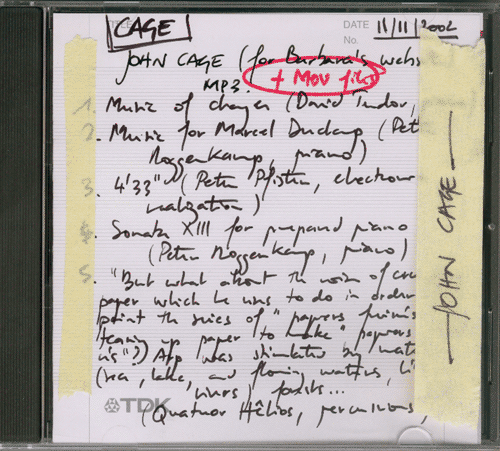 CAGE
DATE 11/11/2002
No.
JOHN CAGE (for Barbara's webs
MP3. + MOV files
1. Music of changes (David Tudor,
2. Music for Marcel Duchamp (Pet
Roggenkamp, piano)
3. 4'33" (Peter Pfister,
realization)
4. Sonata XIII for prepared piano
(Peter Roggenkamp, piano)
5. "But what about the noise of cru
paper which he uns to do in order
paint the series of "papers froissés
tearing up paper to make "papiers
? Arp was stimulated by wat
(sea, lake, and flowing waters, li
rivers) forests...
TDK
(Quatuor Hêlios, percussions,
JOHN CAGE